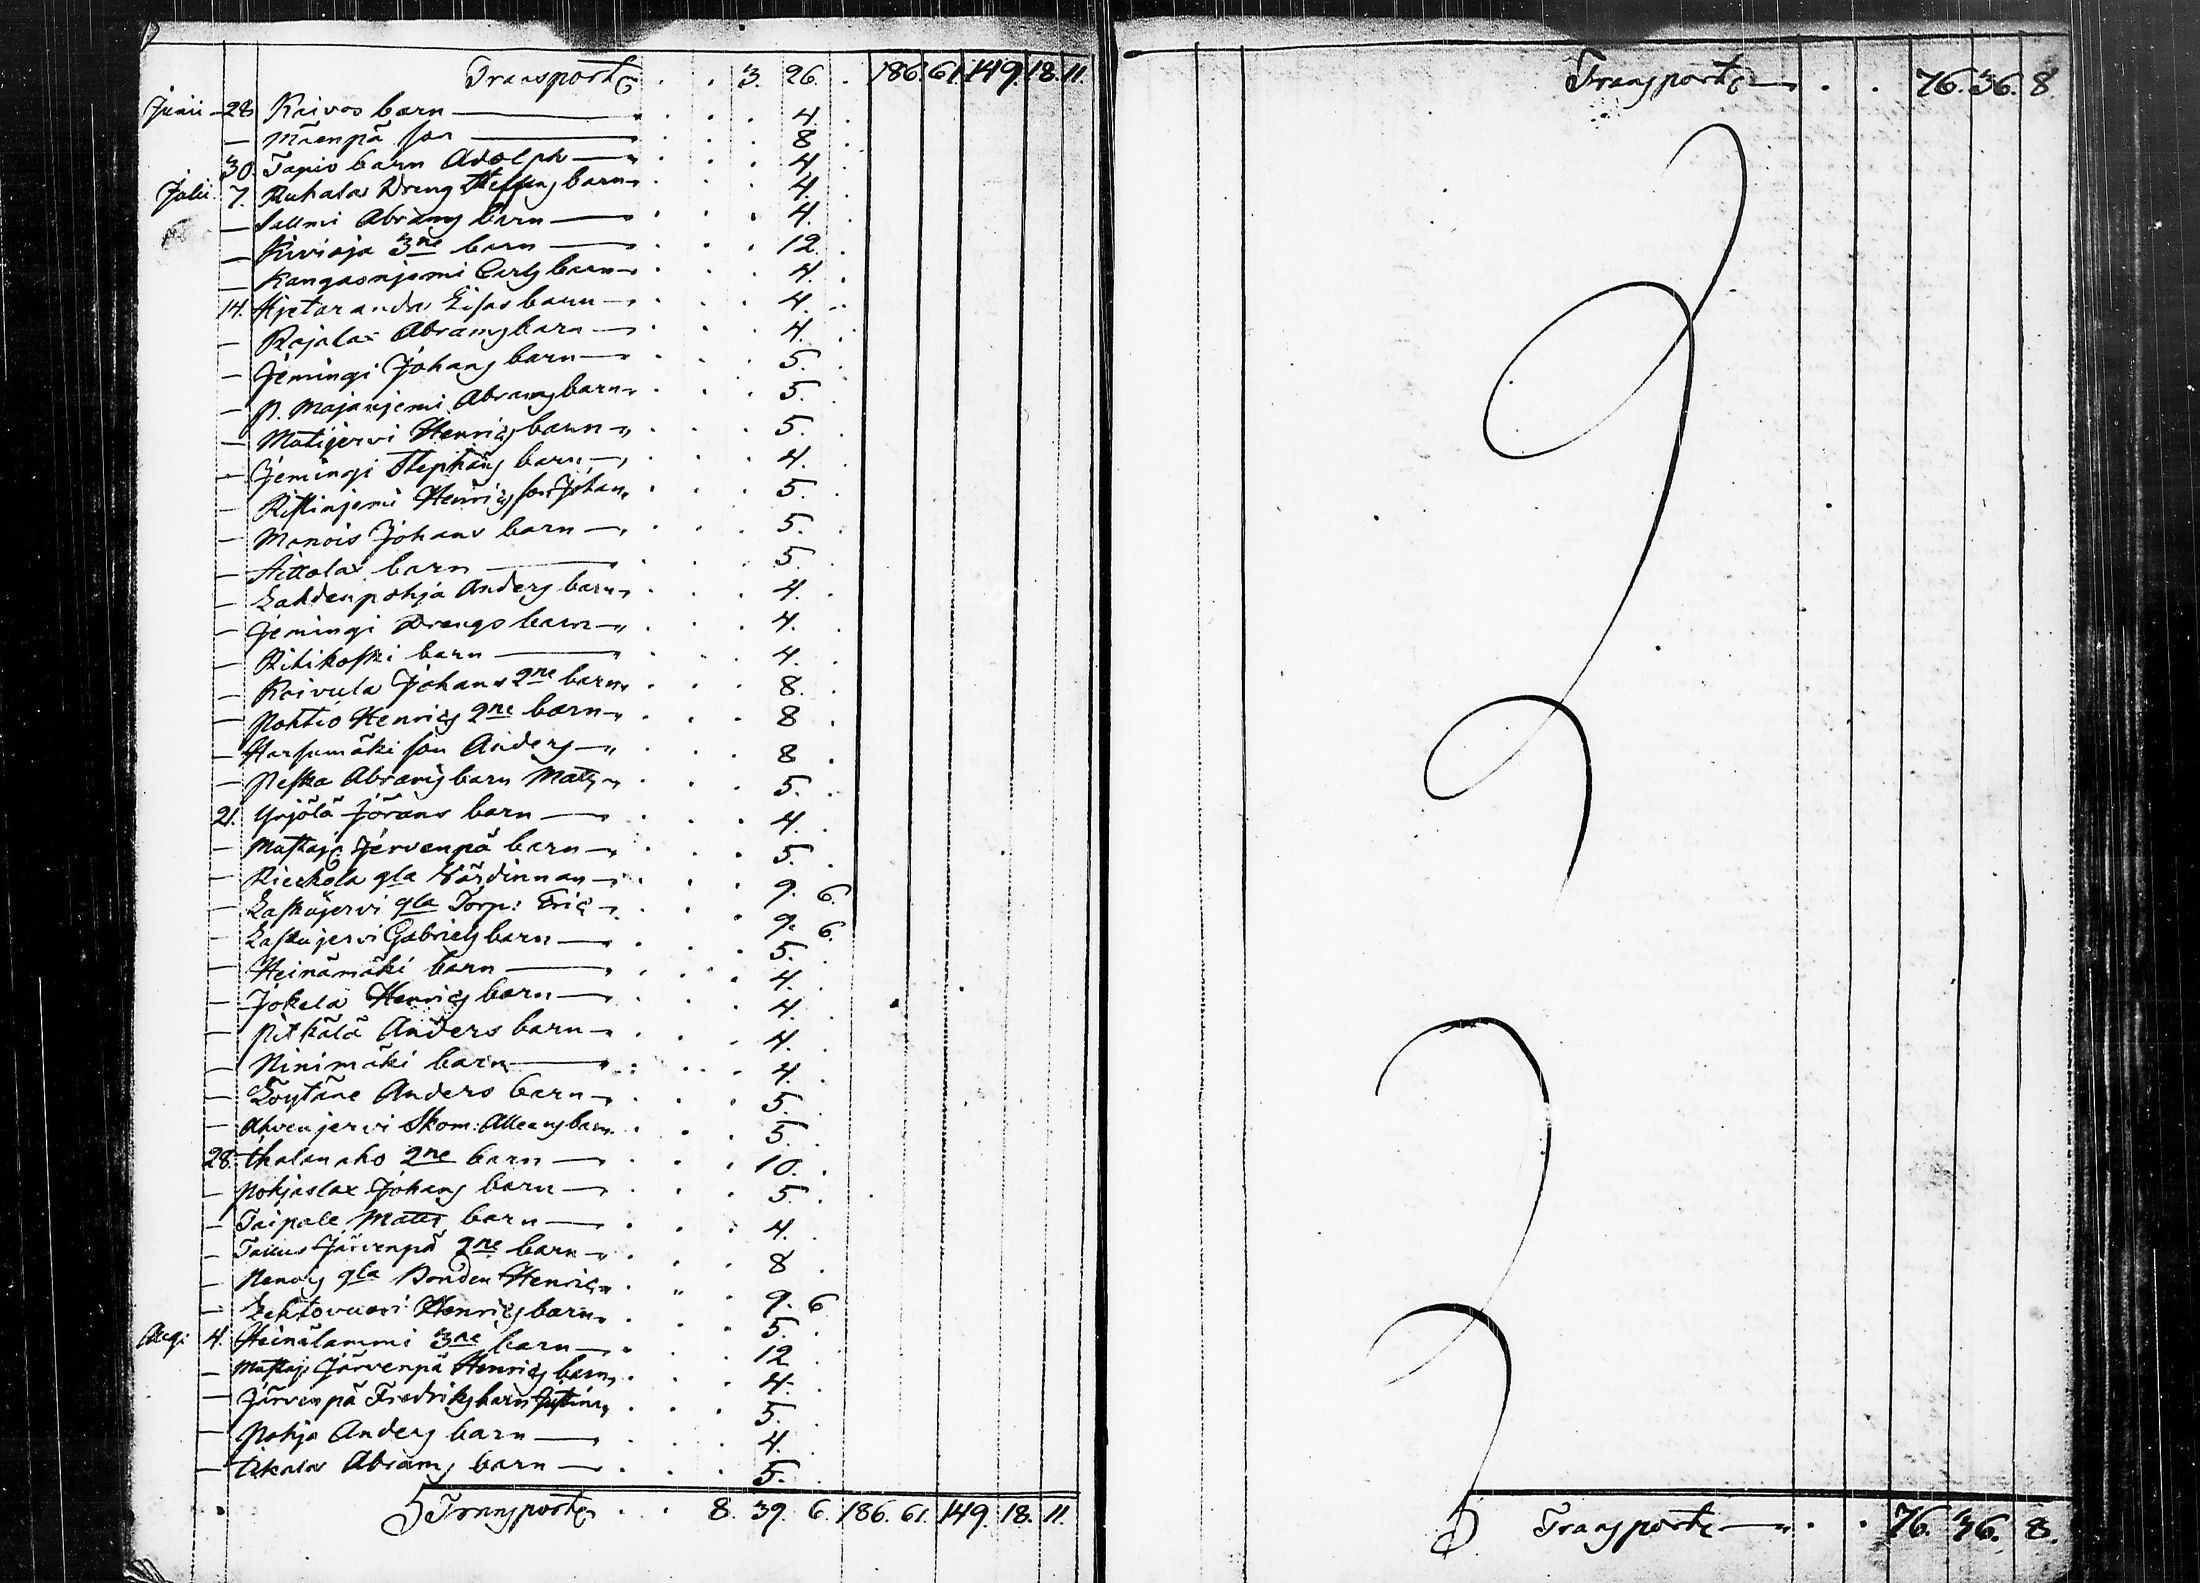 Transporte . . 3. 26. . 186. 61. 149. 18. 11.
Junii 28 Koivos barn 4.
— Mäenpä son 8
30. Tapio barn Adolph 4.
Julii 7. Ruhala Dreng Steffens barn 4.
— Sallmi Abrams barn 4.
— Kiviaja 3ne barn 12.
— Kangasnjemi Carls barn 4.
14. Hjetaranda Lisas barn 4.
— Rajala Abrams barn 4.
— Jemingi Johans barn 5.
— P. Majanjemi Abrams barn 5.
— Matijervi Henrics barn 5.
— Jemingi Stephans barn 4.
— Ristinjemi Henrics son Johan 5.
— Manois Johans barn 5.
— Aittola barn 5.
— Lahdenpohja Anders barn 4.
— Jemingi Drengs barn 4.
— Ritikoski barn 4.
— Koivula Johans 2ne barn 8.
— Pohtio Henrics 2ne barn 8
— Harsumäki son Anders 8
— Peska Abrams barn Mats 5.
21. Yrjölä Jörans barn 4.
— Mustaj: Jervenpä barn 5.
— Kieskola gla Värdinnan 9. 6.
— Laskujervi gla Torp: Eric 9. 6.
— Laskujervi Gabriels barn 5.
— Heinämäki barn 4.
— Jokela Henrics barn 4.
— Pitkälä Anders barn 4.
— Ninimäki barn 4.
— Löytäne Anders barn 5.
— Ahvenjervi Skom: barn 5.
28. Ihalanaho 2ne barn 10.
— Pohjaslax Johans barn 5.
— Taipale Mats barn 4.
— Taius Järvenpä 2ne barn 8
— Nanois gla Bonden Henric 9. 6
— Lehtovuori Henrics barn 5.
Aug: 4. Heinälammi 3ne barn 12
— Mustaj: Järvenpä Henrics barn 4.
— Järvenpä Fredriks barn 5.
— Pohja Anders barn 4.
— Ukala Abrams barn 5.
Transporte . . 8. 39. 6. 186. 61. 149. 18. 11.
Transporte . . 76. 36. 8
Transporte . . 76. 36. 8.